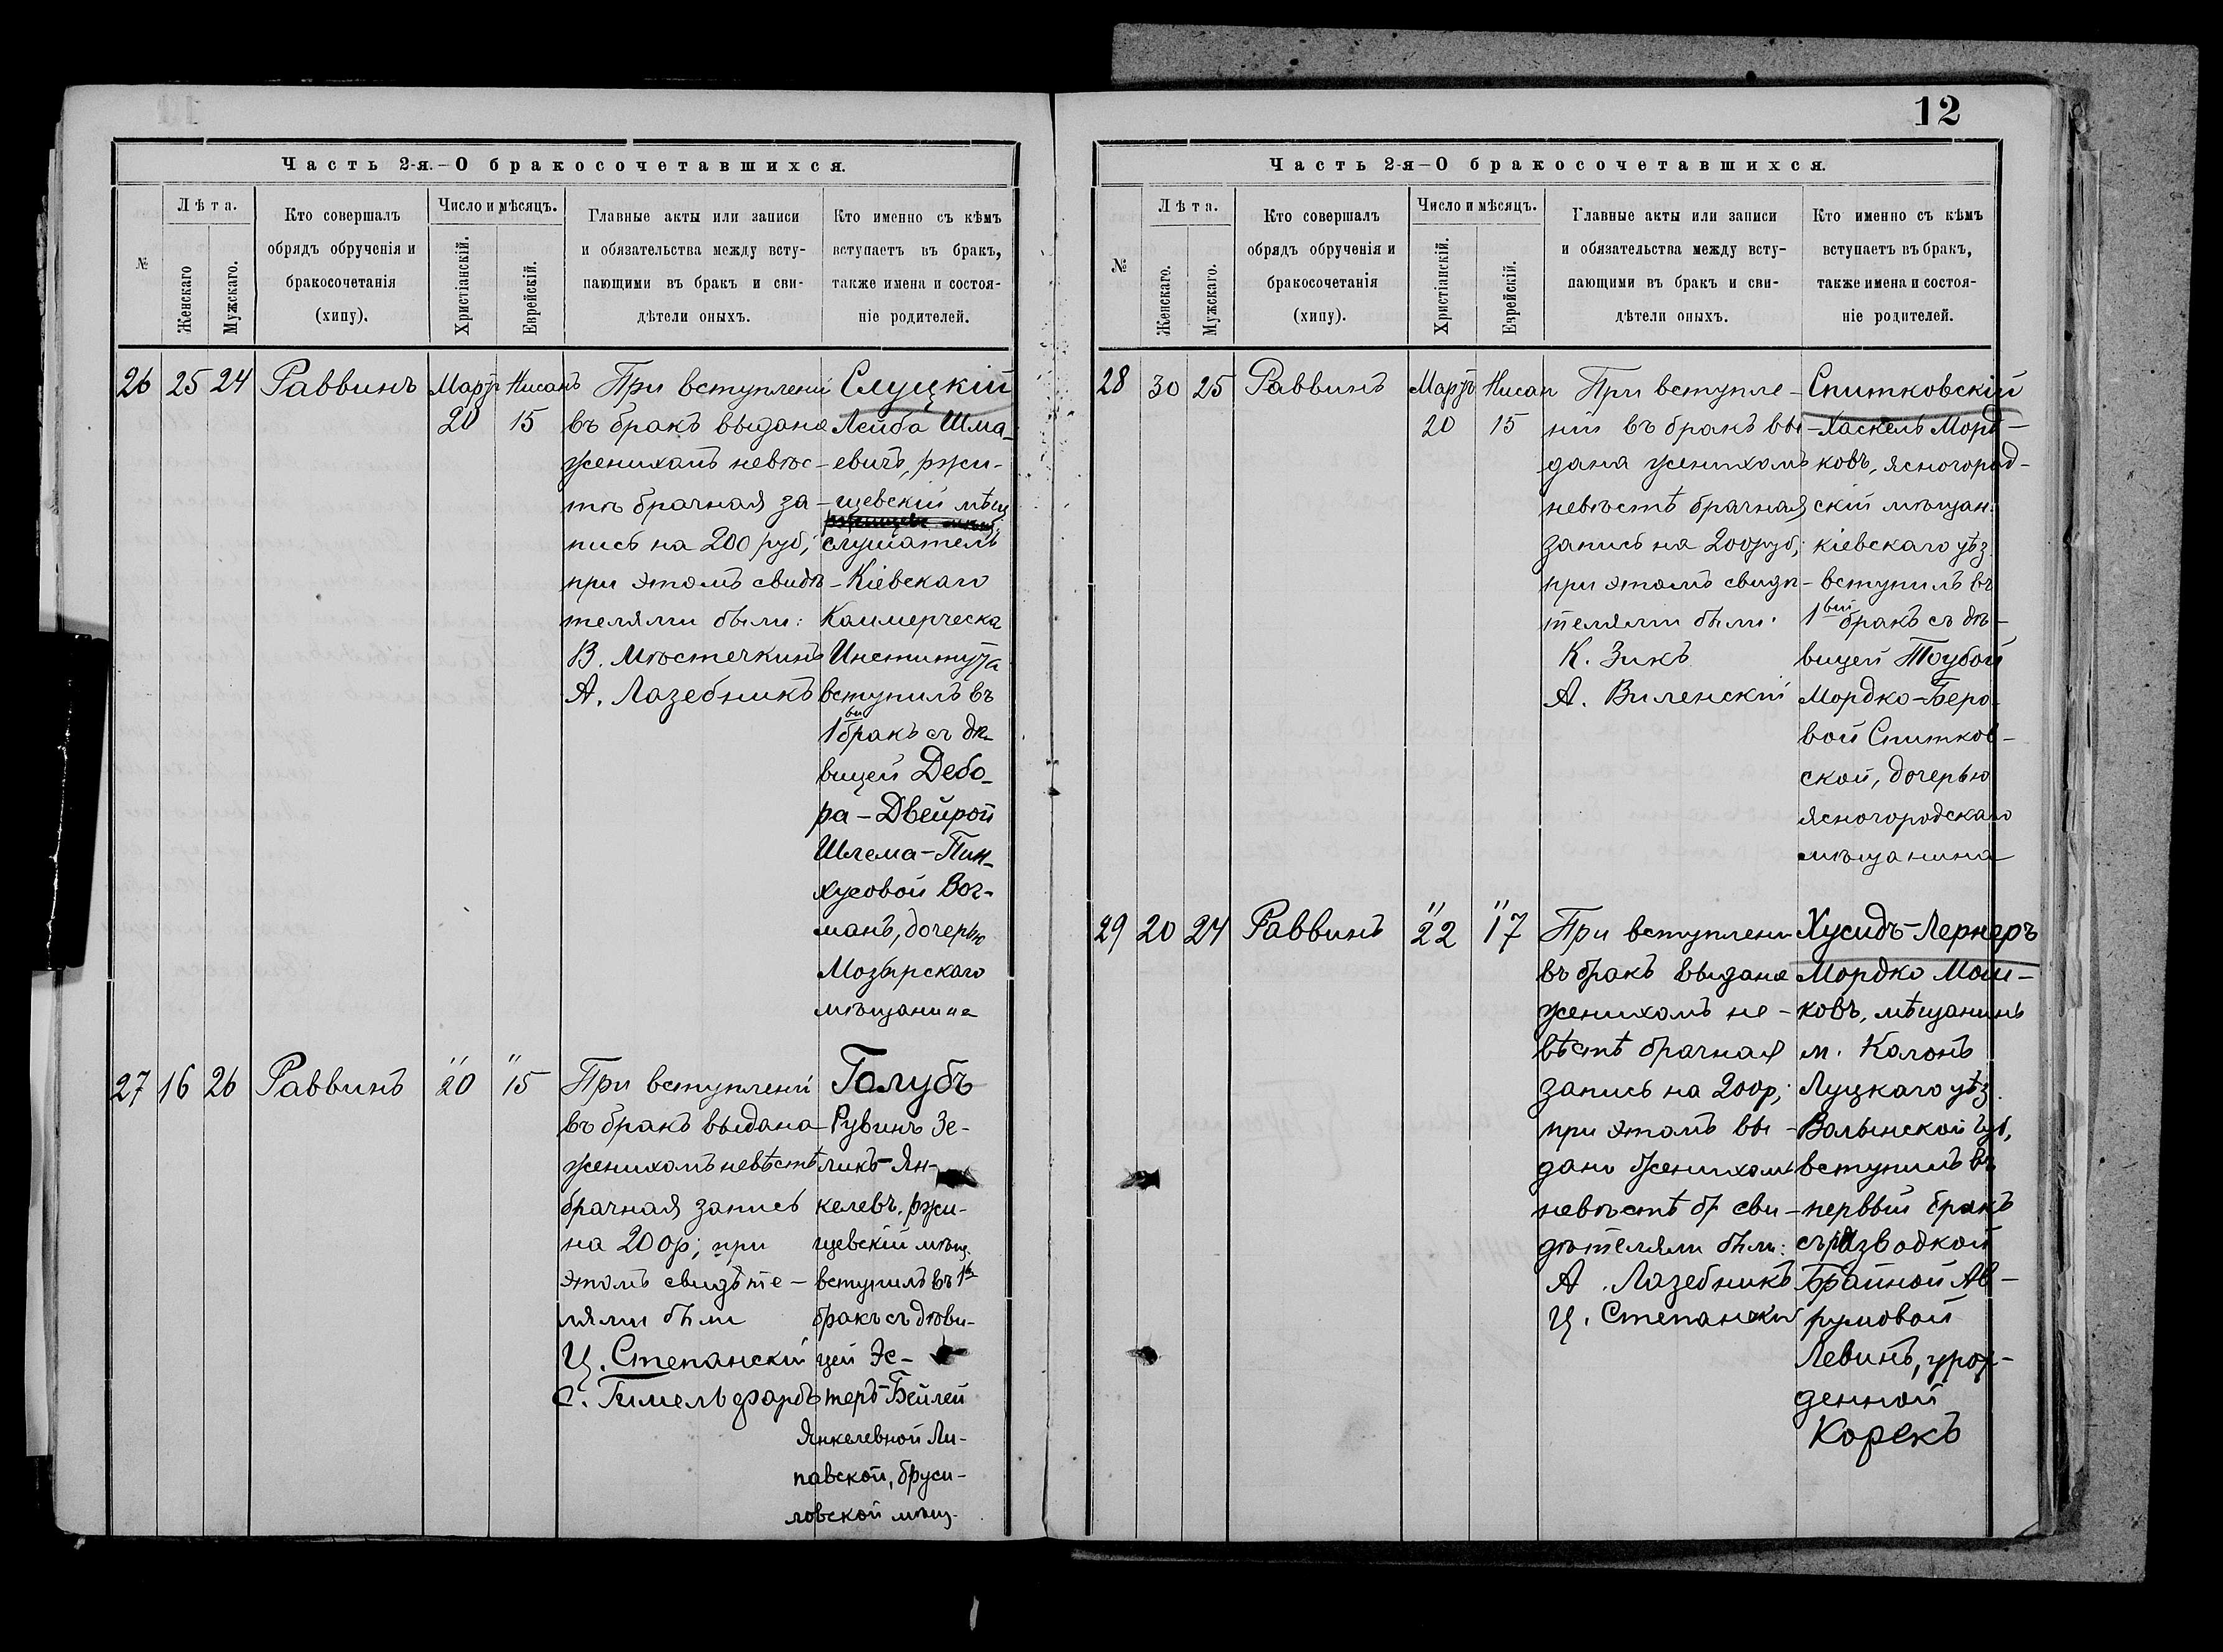 Часть 2-я.—О бракосочетавшихся.
№
Лѣта.
Женскаго
Мужскаго.
Кто совершалъ
обрядъ обрученія и
бракосочетанія
(хипу).
Число и мѣсяцъ.
Христіанскій.
Еврейскій.
Главные акты или записи
и обязательства между всту-
пающими въ бракъ и сви-
дѣтели оныхъ.
Кто именно съ кѣмъ
вступаетъ въ бракъ,
также имена и состоя-
ніе родителей.
26
25
24
Раввинъ
Мартъ
20
Нисанъ
15
При вступленіи
въ бракъ выдана
женихомъ невѣс-
тѣ брачная за-
пись на 200 руб;
при этомъ свидѣ-
телями были:
В. Мѣстечкинъ
А. Лазебникъ
Слуцкій
Лейба Шма-
евичъ, ржи-
щевскій мѣщ
слушатель
Кіевскаго
Коммерческа
Института
вступилъ въ
1вы бракъ съ дѣ-
вицей Дебо-
ра-Двейрой
Шлема-Пин-
хусовой Воч-
манъ, дочерью
Мозырскаго
мѣщанина
27
16
26
Раввинъ
" 20
" 15
При вступленіи
въ бракъ выдана
женихомъ невѣстѣ
брачная запись
на 200р; при
этомъ свидѣте-
лями были
Ц. Степанскій
С. Гимельфарбъ
Голубъ
Рувинъ Зе-
ликъ-Ян-
келевъ. ржи-
щевскій мѣщ.
вступилъ въ 1й
бракъ съ дѣви-
цей Эс-
теръ-Бейлей
Янкелевной Ли-
павской, бруси-
ловской мѣщ.
12
Часть 2-я—О бракосочетавшихся.
№
Лѣта.
Женскаго.
Мужскаго.
Кто совершалъ
обрядъ обрученія и
бракосочетанія
(хипу).
Число и мѣсяцъ.
Христіанскій.
Еврейскій.
Главные акты или записи
и обязательства между всту-
пающими въ бракъ и сви-
дѣтели оныхъ.
Кто именно съ кѣмъ
вступаетъ въ бракъ,
также имена и состоя-
ніе родителей.
28
30
25
Раввинъ
Мартъ
20
Нисан
15
При вступле-
ніи въ бракъ вы-
дана женихомъ
невѣстѣ брачная
запись на 200руб;
при этомъ свидѣ-
телями были:
К. Зикъ
А. Виленскій
Спитковскій
Хаскель Морд-
ковъ, ясногород-
скій мѣщан.
кіевскаго уѣз.
вступилъ въ
1вый бракъ съ дѣ-
вицей Тоубой
Мордко-Беро-
вой Спитков-
ской, дочерью
ясногородскаго
мѣщанина
29
20
24
Раввинъ
" 22
" 17
При вступлени
въ бракъ выдана
женихомъ не-
вѣстѣ брачная
запись на 200р;
при этомъ вы-
дано женихомъ
невѣстѣ бр сви-
дѣтелями были:
А. Лазебникъ
Ц. Степанскій
Хусидъ-Лернеръ
Мордко Мош-
ковъ, мѣщанинъ
м. Колокъ
Луцкаго уѣз.
Волынской губ,
вступилъ въ
первый бракъ
съ разводкой
Брайной Ав-
румовой
Левинъ, урож-
денной
Корекъ